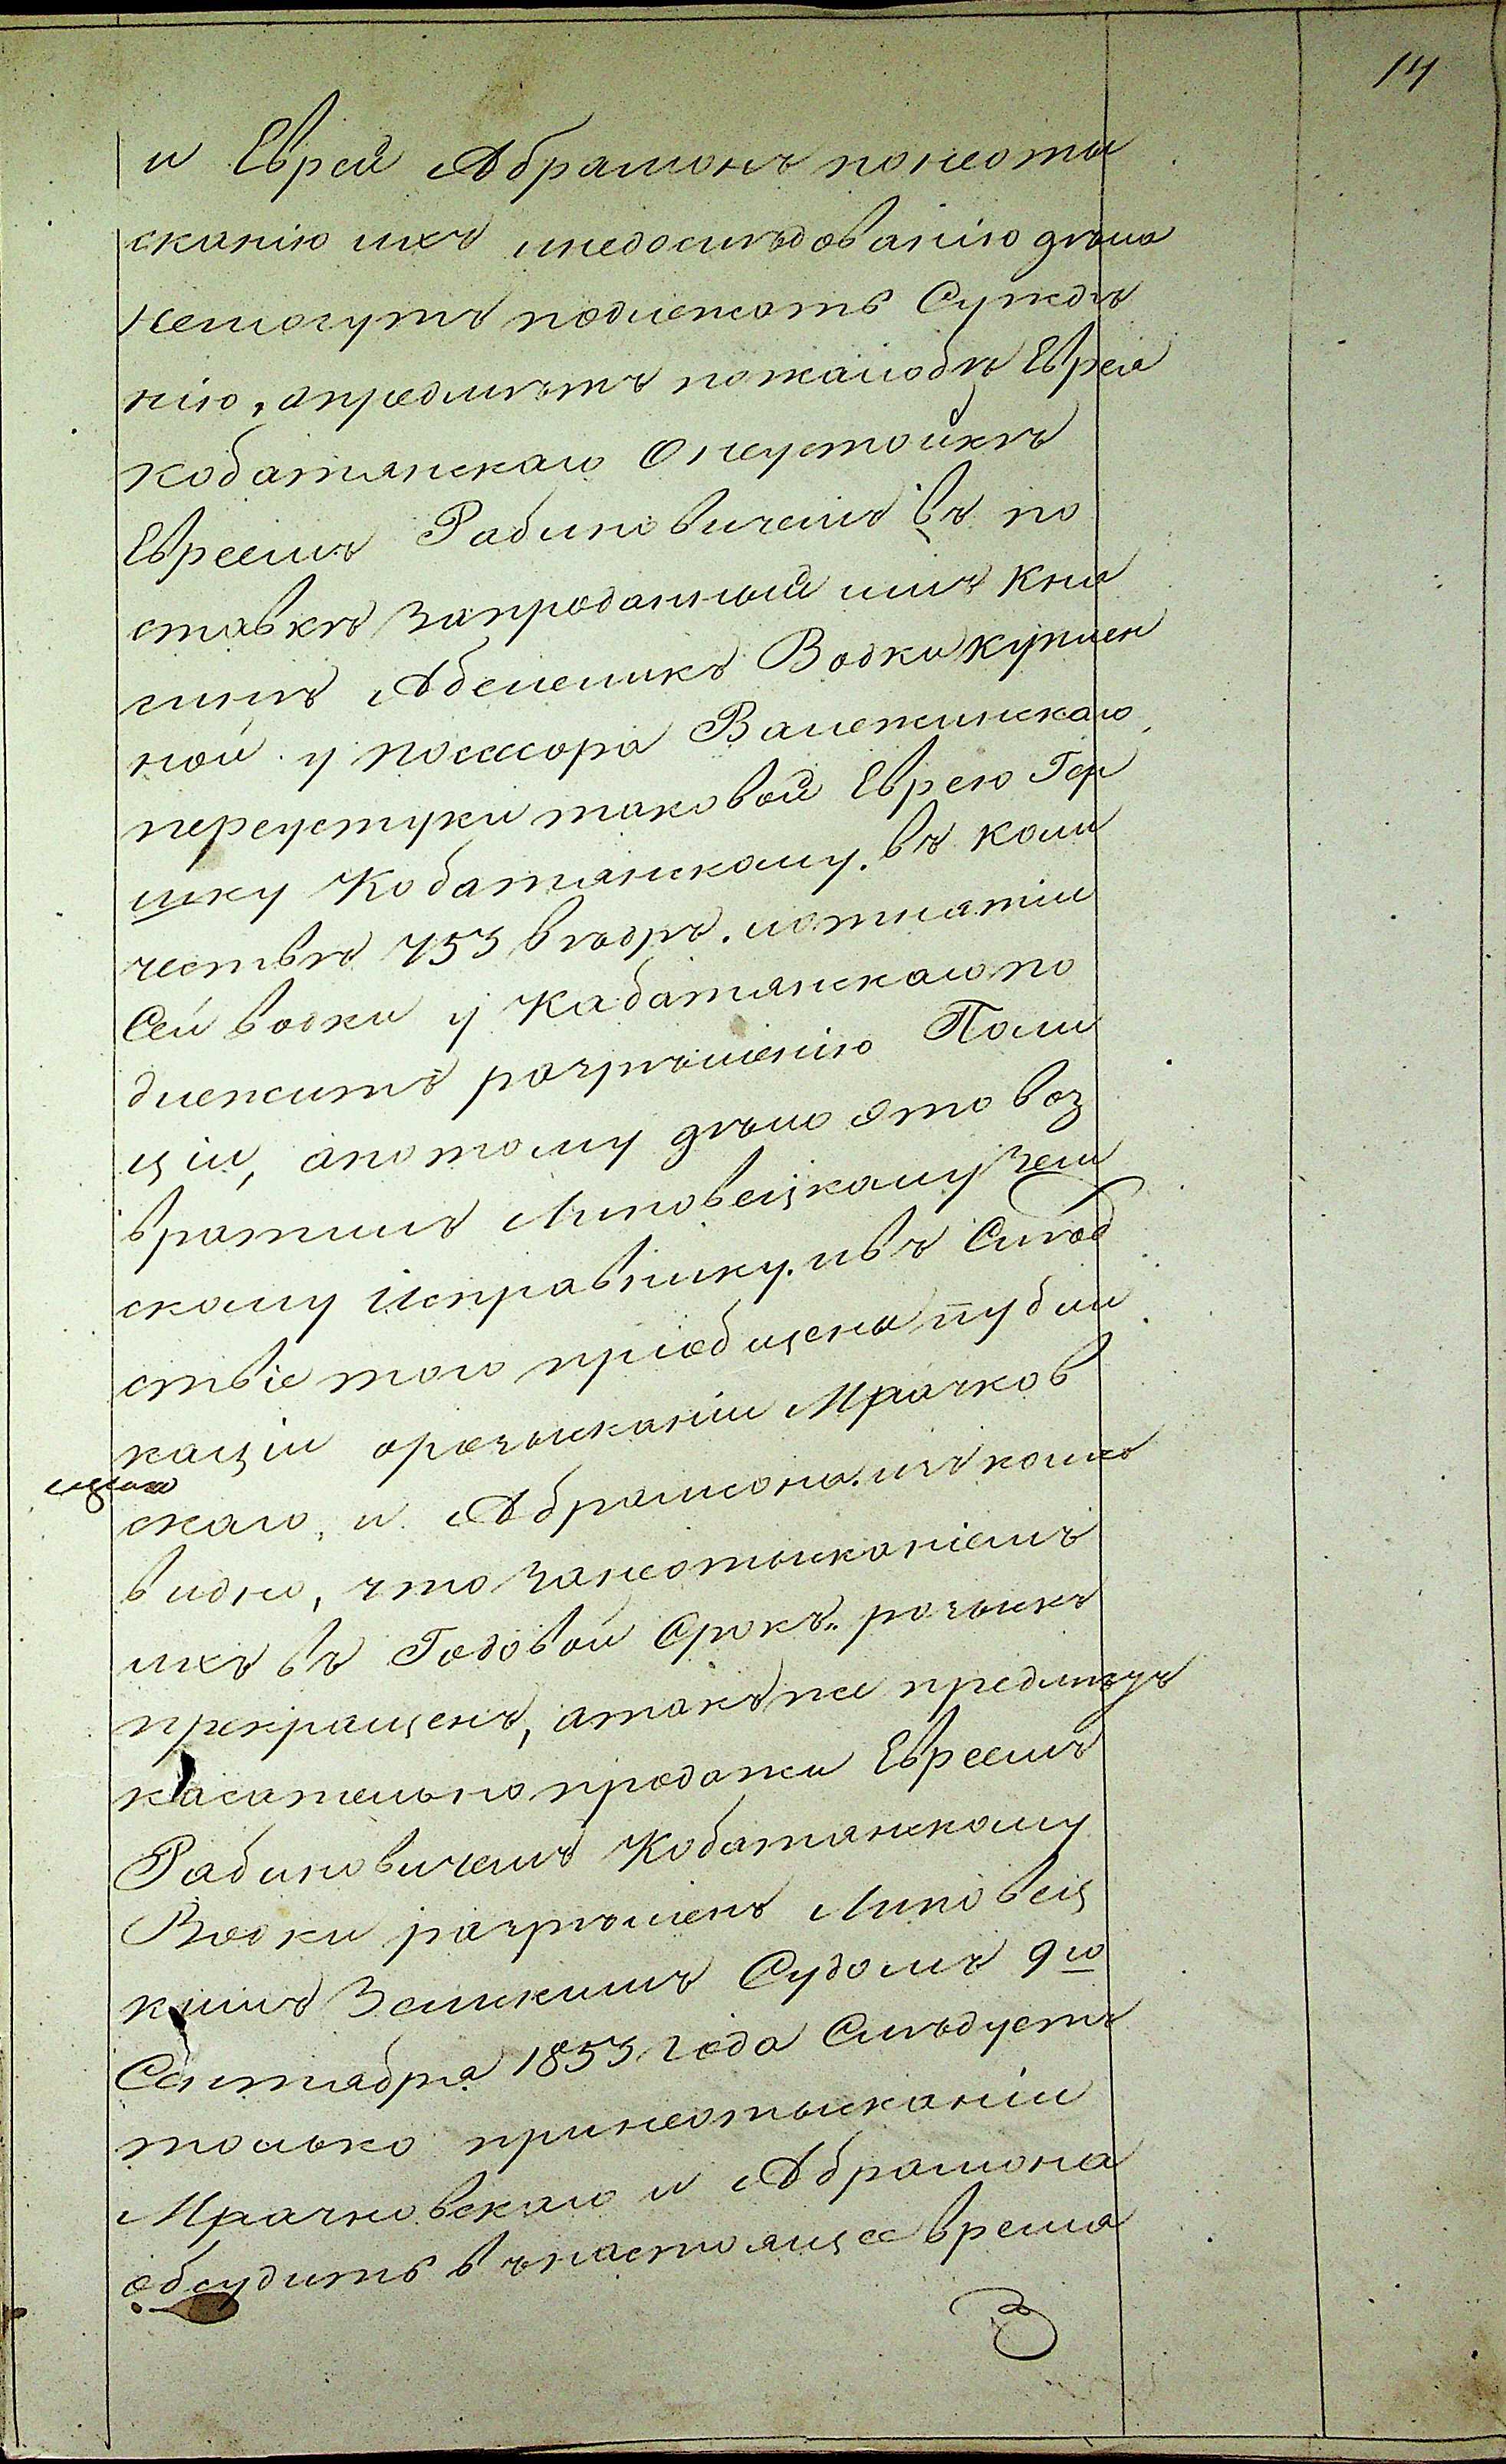 14
и Еврей Абрамонъ понеоты
сканію ихъ инедослѣдованію дѣла
немогутъ подлежать Сужде
нію, апредметъ пожалобѣ Еврея
Кобатянскаго Онеустойкѣ
Евреемъ Рабиновичемъ въ по
ставкѣ Запроданный имъ Кня
гинѣ Абемеликъ Водки куплен
ной у посесора Валежинскаго
переуступки таковой Еврею Гер
шку Кобатянскому. въ коли
чествѣ 753 ведръ. иотнятіи
Сей водки у Кабатянскаго по
длежитъ разрѣшенію Поли
ціи, апотому дѣло это воз
вратилъ Липовецкому Зем
скому Исправнику. ивъ Слѣд
ствіе того пріобщена публи
кація оразысканіи Мрачков
скаго, и Абрамсона. изъ коихъ
видно, что Занеотысканіемъ
ихъ въ Годовой Срокъ розыскъ
прекращенъ, атакъже предметъ
касательно продажи Евреемъ
Рабиновичемъ Кобатянскому
Водки разрѣшенъ Липовец
кимъ Земскимъ Судомъ 9го
Сентября 1853 года Слѣдуетъ
только принеотысканіи
Мрачковскаго и Абрамона
обсудить внастоящее время
В